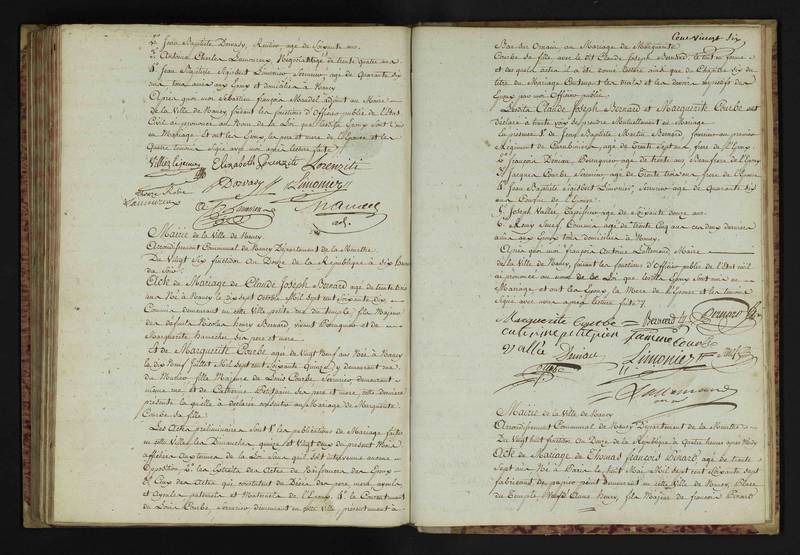 Jean Baptiste Dorvasy, Rentier, agé de soixante ans
Antoine Charles Lamoureux, Négotiant agé de trente quatre ans
Jean Baptiste Sigisbert Limonier, Serrurier, agé de quarante six
ans tous amis aux Epoux et domiciliés à Nancy
Après quoi moi Sébastien françois Mandel adjoint au Maire
de la Ville de Nancy, faisant les fonctions d'Officier public de l'Etat
Civil ai prononcé au Nom de la Loi que lesdits Epoux sont Unis
en Mariage. Et ont les Epoux, les pere et mere de l'Epouse et les
quatre témoins Signé avec moi après lecture faite
Elisabeth Lorenziti Lorenziti
Dorvasy Limonier
Lamoureux
Mandel
adj.
Mairie de la Ville de Nancy
Arrondissement Communal de Nancy Département de la Meurthe
Du Vingt six fructidor An Douze de la République à six heures
du soir
Acte de Mariage de Claude Joseph Bernard agé de trente trois
ans Né à Nancy le dix sept octobre Mil sept cent soixante dix
demeurant en cette Ville petite rue du temple, fils Majeur
de defunts Nicolas henry Bernard Vivant et de
Marguerite ses pere et mere
Et de Marguerite Courbe agée de Vingt Neuf ans Née à Nancy
le dix Neuf Juillet Mil sept cent soixante quinze, y demeurant rue
fille Majeure de Louis Courbe Serrurier demeurant
même rue et de Catherine Petitpien ses pere et mere, cette derniere
présente laquelle a déclaré consentir au Mariage de Marguerite
Courbe sa fille
Les Actes préliminaires sont 1° les publications de Mariage faites
en cette Ville les Dimanches quinze et Vingt deux du présent Mois
affichées aux termes de la Loi sans qu'il soit intervenu aucune
Opposition 2° les Extraits des Actes de Naissances des Epoux
3° Ceux des Actes qui constatent du Décès des pere mere, ayeuls
et ayeules paternels et Maternels de l'Epoux, 4° le Consentement
de Louis Courbe, Serrurier demeurant en cette Ville, présentement à
Cent Vingt Six
Bar sur Ornain, au Mariage de Marguerite
Courbe sa fille avec le dit Claude Joseph Bernard, le tout en forme
et desquels actes il a été donné lecture ainsi que du Chapitre six du
titre du Mariage Contenant les droits et les devoirs respectifs des
Epoux par moi Officier public
Lesdits Claude Joseph Bernard et Marguerite Courbe ont
déclaré à haute voix se prendre Mutuellement en Mariage
En présence de Jean Baptiste Martin Bernard, fourrier au premier
Régiment de Carabiniers, agé de trente sept ans frere de l'Epoux
2° françois Deniau agé de trente ans Beaufrere de l'Epoux
3° Jacques Courbe, Serrurier agé de trente trois ans frere de l'Epouse
4° Jean Baptiste Sigisbert Limonier, Serrurier agé de quarante six
ans Cousin de l'Epoux
5° Joseph Vallée, Tapissier agé de soixante douze ans
agé de trente Cinq ans ces deux derniers
amis aux Epoux tous domiciliés à Nancy
Après quoi moi françois Antoine Lallemand Maire
de la Ville de Nancy, faisant les fonctions d'Officier public de l'Etat civil
ai prononcé au nom de la Loi que lesdits Epoux sont unis en
Mariage et ont les Epoux, la Mere de l'Epouse et les témoins
Signé avec moi après lecture faite
Marguerite Courbe Bernard Bernard
caterine petitpien femme Courbe
Vallée Deniau Limonier
Lallemand
Mairie de la Ville de Nancy
Arrondissement Communal de Nancy Département de la Meurthe
Du Vingt huit fructidor An Douze de la République à quatre heures après Midy
Acte de Mariage de Thomas françois Pinard agé de trente
sept ans Né à Paris le huit Mai Mil sept cent soixante sept
fabricant de papier peint demeurant en cette Ville de Nancy, Place
du Temple, fils Majeur de françois Pinard